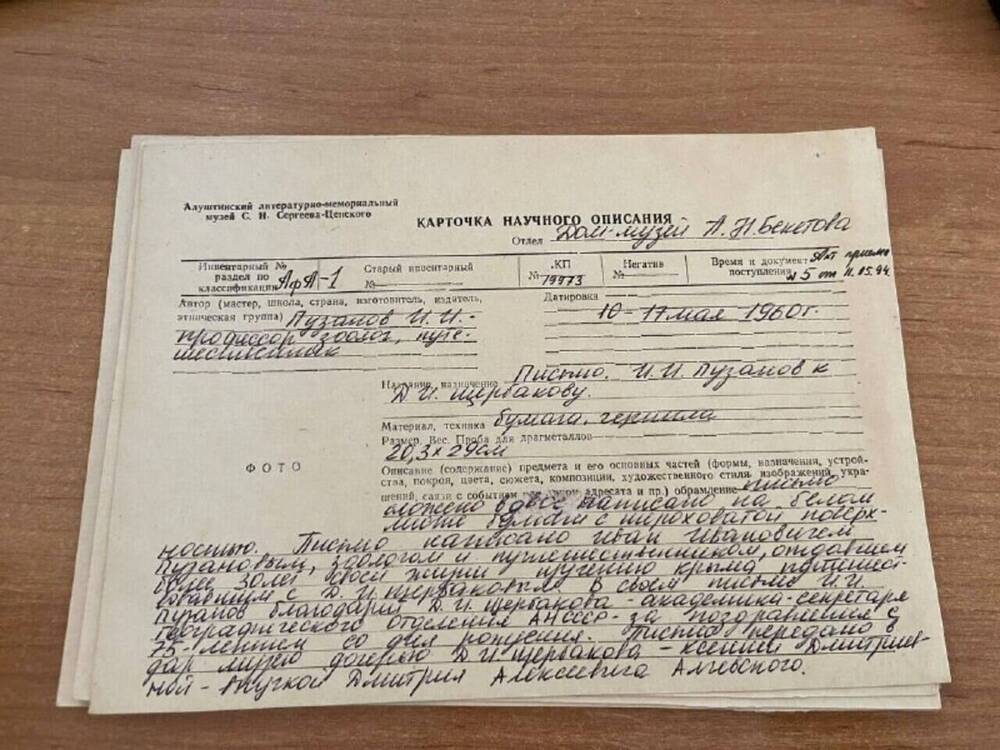 Алуштинский литературно-мемориальный
музей С. Н. Сергеева-Ценского
КАРТОЧКА НАУЧНОГО ОПИСАНИЯ
Отдел Дом-музей А.Н.Бекетова
Инвентарный №
раздел по
классификации АфА-1
Старый инвентарный
№
КП
№ 79973
Негатив
№
Время и документ Акт приема
поступления №5 от 11.05.94
Автор (мастер, школа, страна, изготовитель, издатель,
этническая группа) Пузанов И.И.-
профессор зоолог, путе-
шественник
Датировка
10-17 мая 1960г.
Название, назначение Письмо. И.И. Пузанов к
Д.И. Щербакову.
Материал, техника бумага, чернила
Размер. Вес. Проба для драгметаллов
20,3х29см
ФОТО
Описание (содержание) предмета и его основных частей (формы, назначения, устрой-
ства, покроя, цвета, сюжета, композиции, художественного стиля, изображений, укра-
шений, связи с событием адресата и пр.) обрамление письмо
сложено вдвое написано на белом
листе бумаги с шероховатой поверх-
ностью. Письмо написано Иван Ивановичем
Пузановым, зоологом и путешественником, отдавшем
более 30 лет своей жизни изучению Крыма
с Д.И. Щербаковым. В своем письме И.И
Пузанов благодарит Д.И. Щербакова - академика-секретаря
географического отделения АНСССР- за поздравления с
75-летием со дня рождения. Письмо передано в
дар музею дочерью Д.И. Щербакова - Ксенией Дмитриев-
ной - внучкой Дмитрия Алексеевича Алчевского.